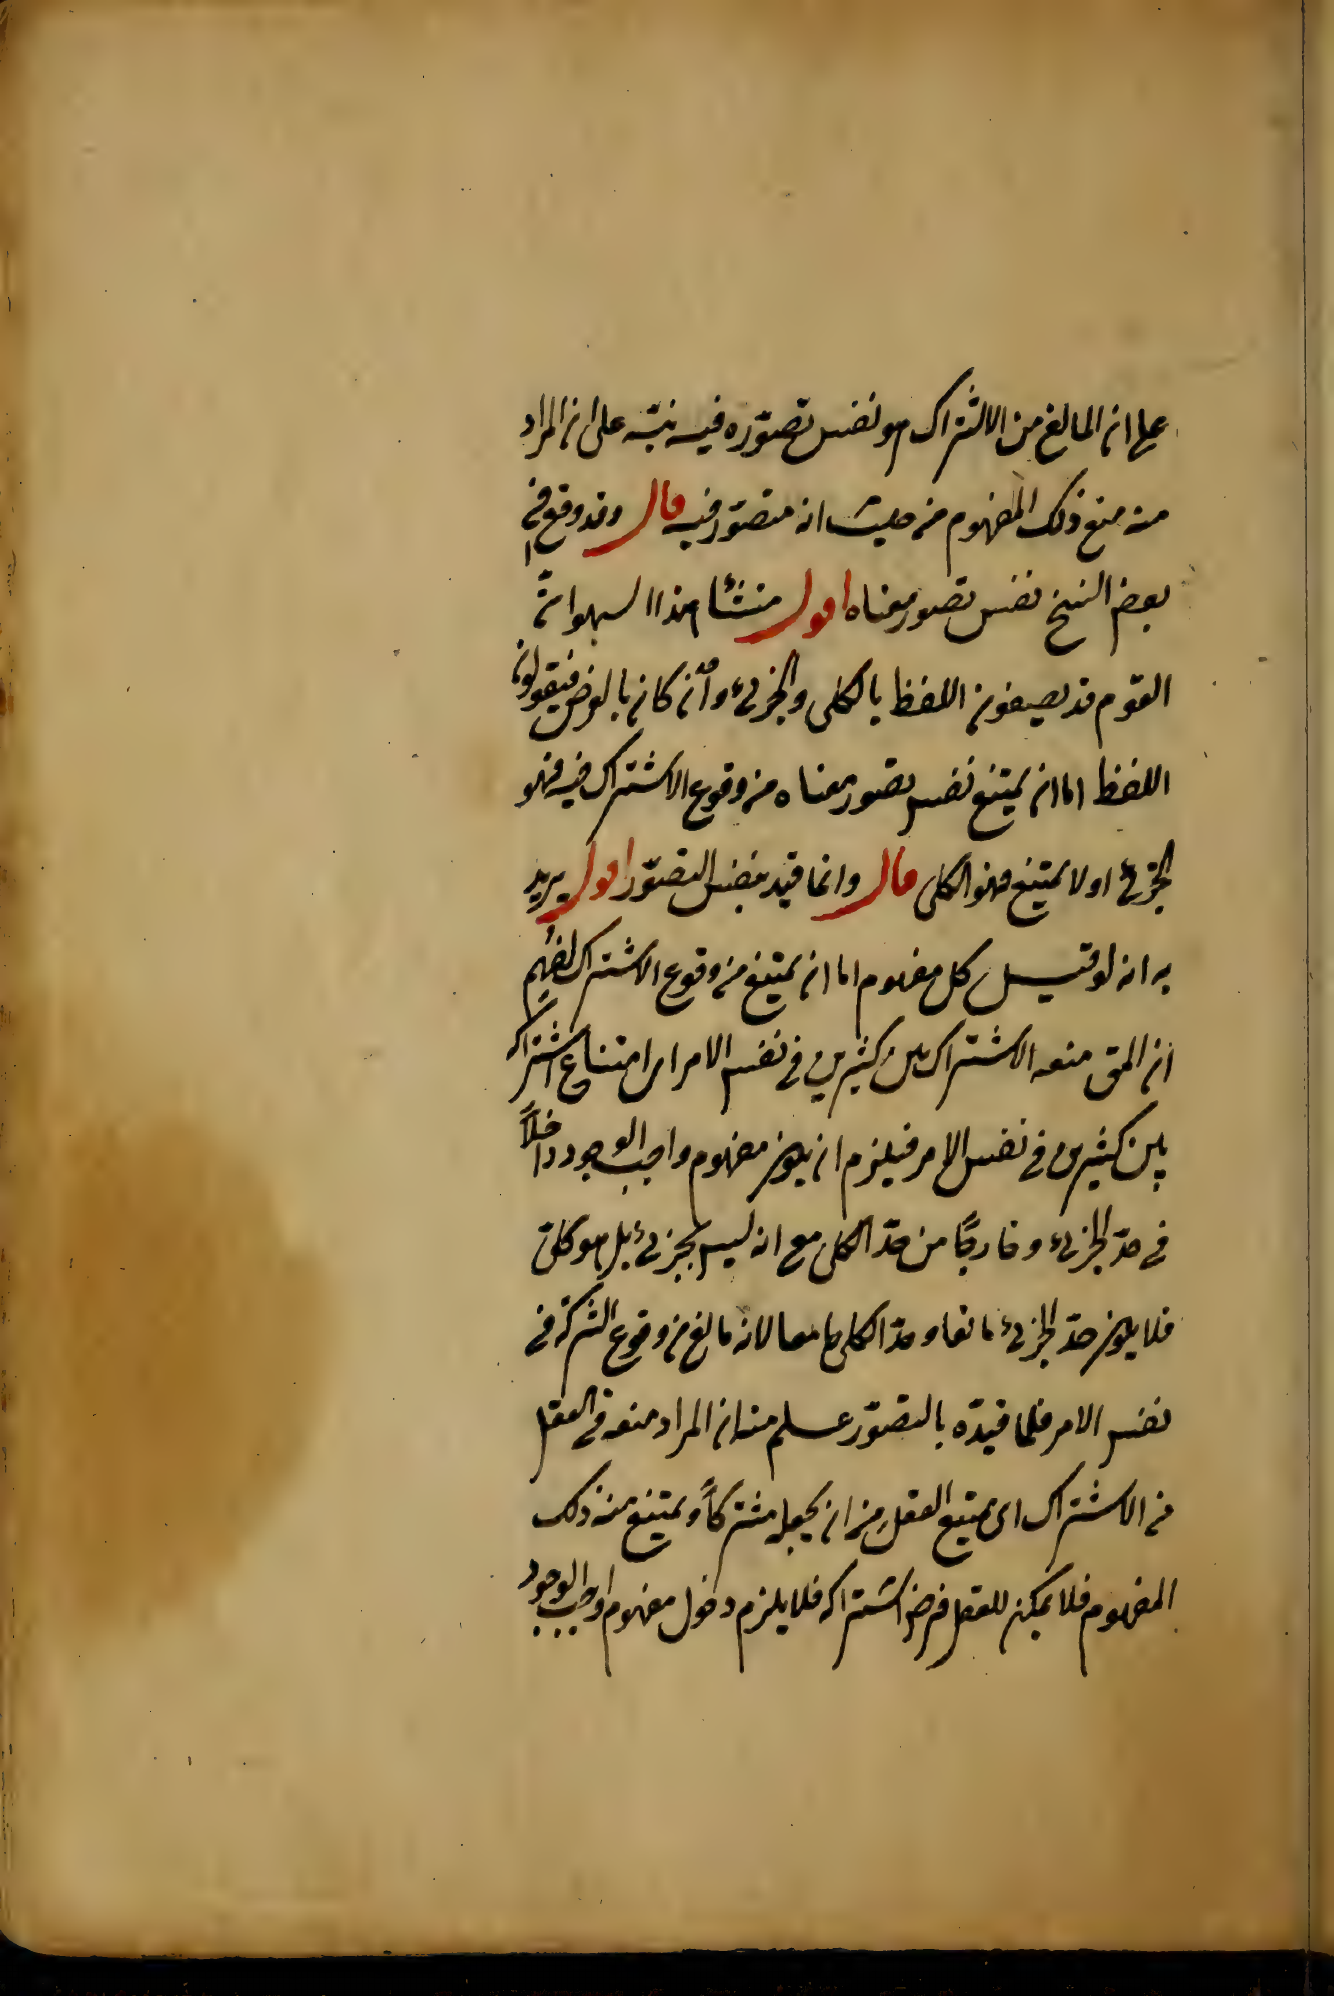 على ان المانع من الاشتراك هو نفس تصوّره فيه نبّه على ان المراد
منه منع ذلك المفهوم من حيث انه متصوّر فيه قال وقد وقع في
بعض النسخ نفس تصور معناه اقول منشأ هذا السهو انّ
القوم قد يصفون اللفظ بالكلى والجزئى وان كان بالعرض فيقولون
اللفظ اما ان يمتنع نفس تصور معناه من وقوع الاشتراك فيه فهو
الجزئى او لا يمتنع فهو الكلى قال وانما قيد بنفس التصوّر اقول يريد
به انه لو قيل كل مفهوم اما ان يمتنع من وقوع الاشتراك لفهم
ان المق منعه الاشتراك بين كثيرين في نفس الامر اى امتناع اشتراكه
بين كثيرين في نفس الامر فيلزم ان يكون مفهوم واجب الوجود داخلاً
في حدّ الجزئى وخارجًا من حدّ الكلى مع انه ليس بجزئى بل هو كلىّ
فلا يكون حدّ الجزئى مانعا وحدّ الكلى جامعا لانه مانع من وقوع الشركة في
نفس الامر فلما قيدّه بالتصوّر علم منه ان المراد منعه في العقل
من الاشتراك اى يمتنع العقل من ان يجعله مشتركاً ويمتنع منه ذلك
المفهوم فلا يمكن للعقل فرض اشتراكه فلا يلزم دخول مفهوم واجب الوجود